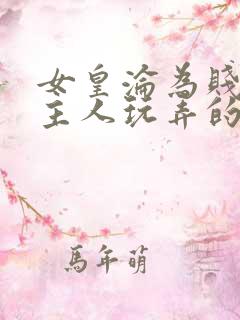 女皇淪為賤
主人玩弄的
馬年萌